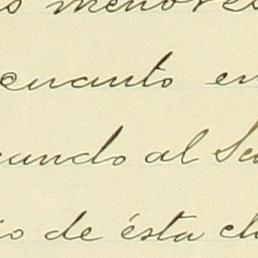 s menores
cuanto en
cando al Se
io de ésta cl